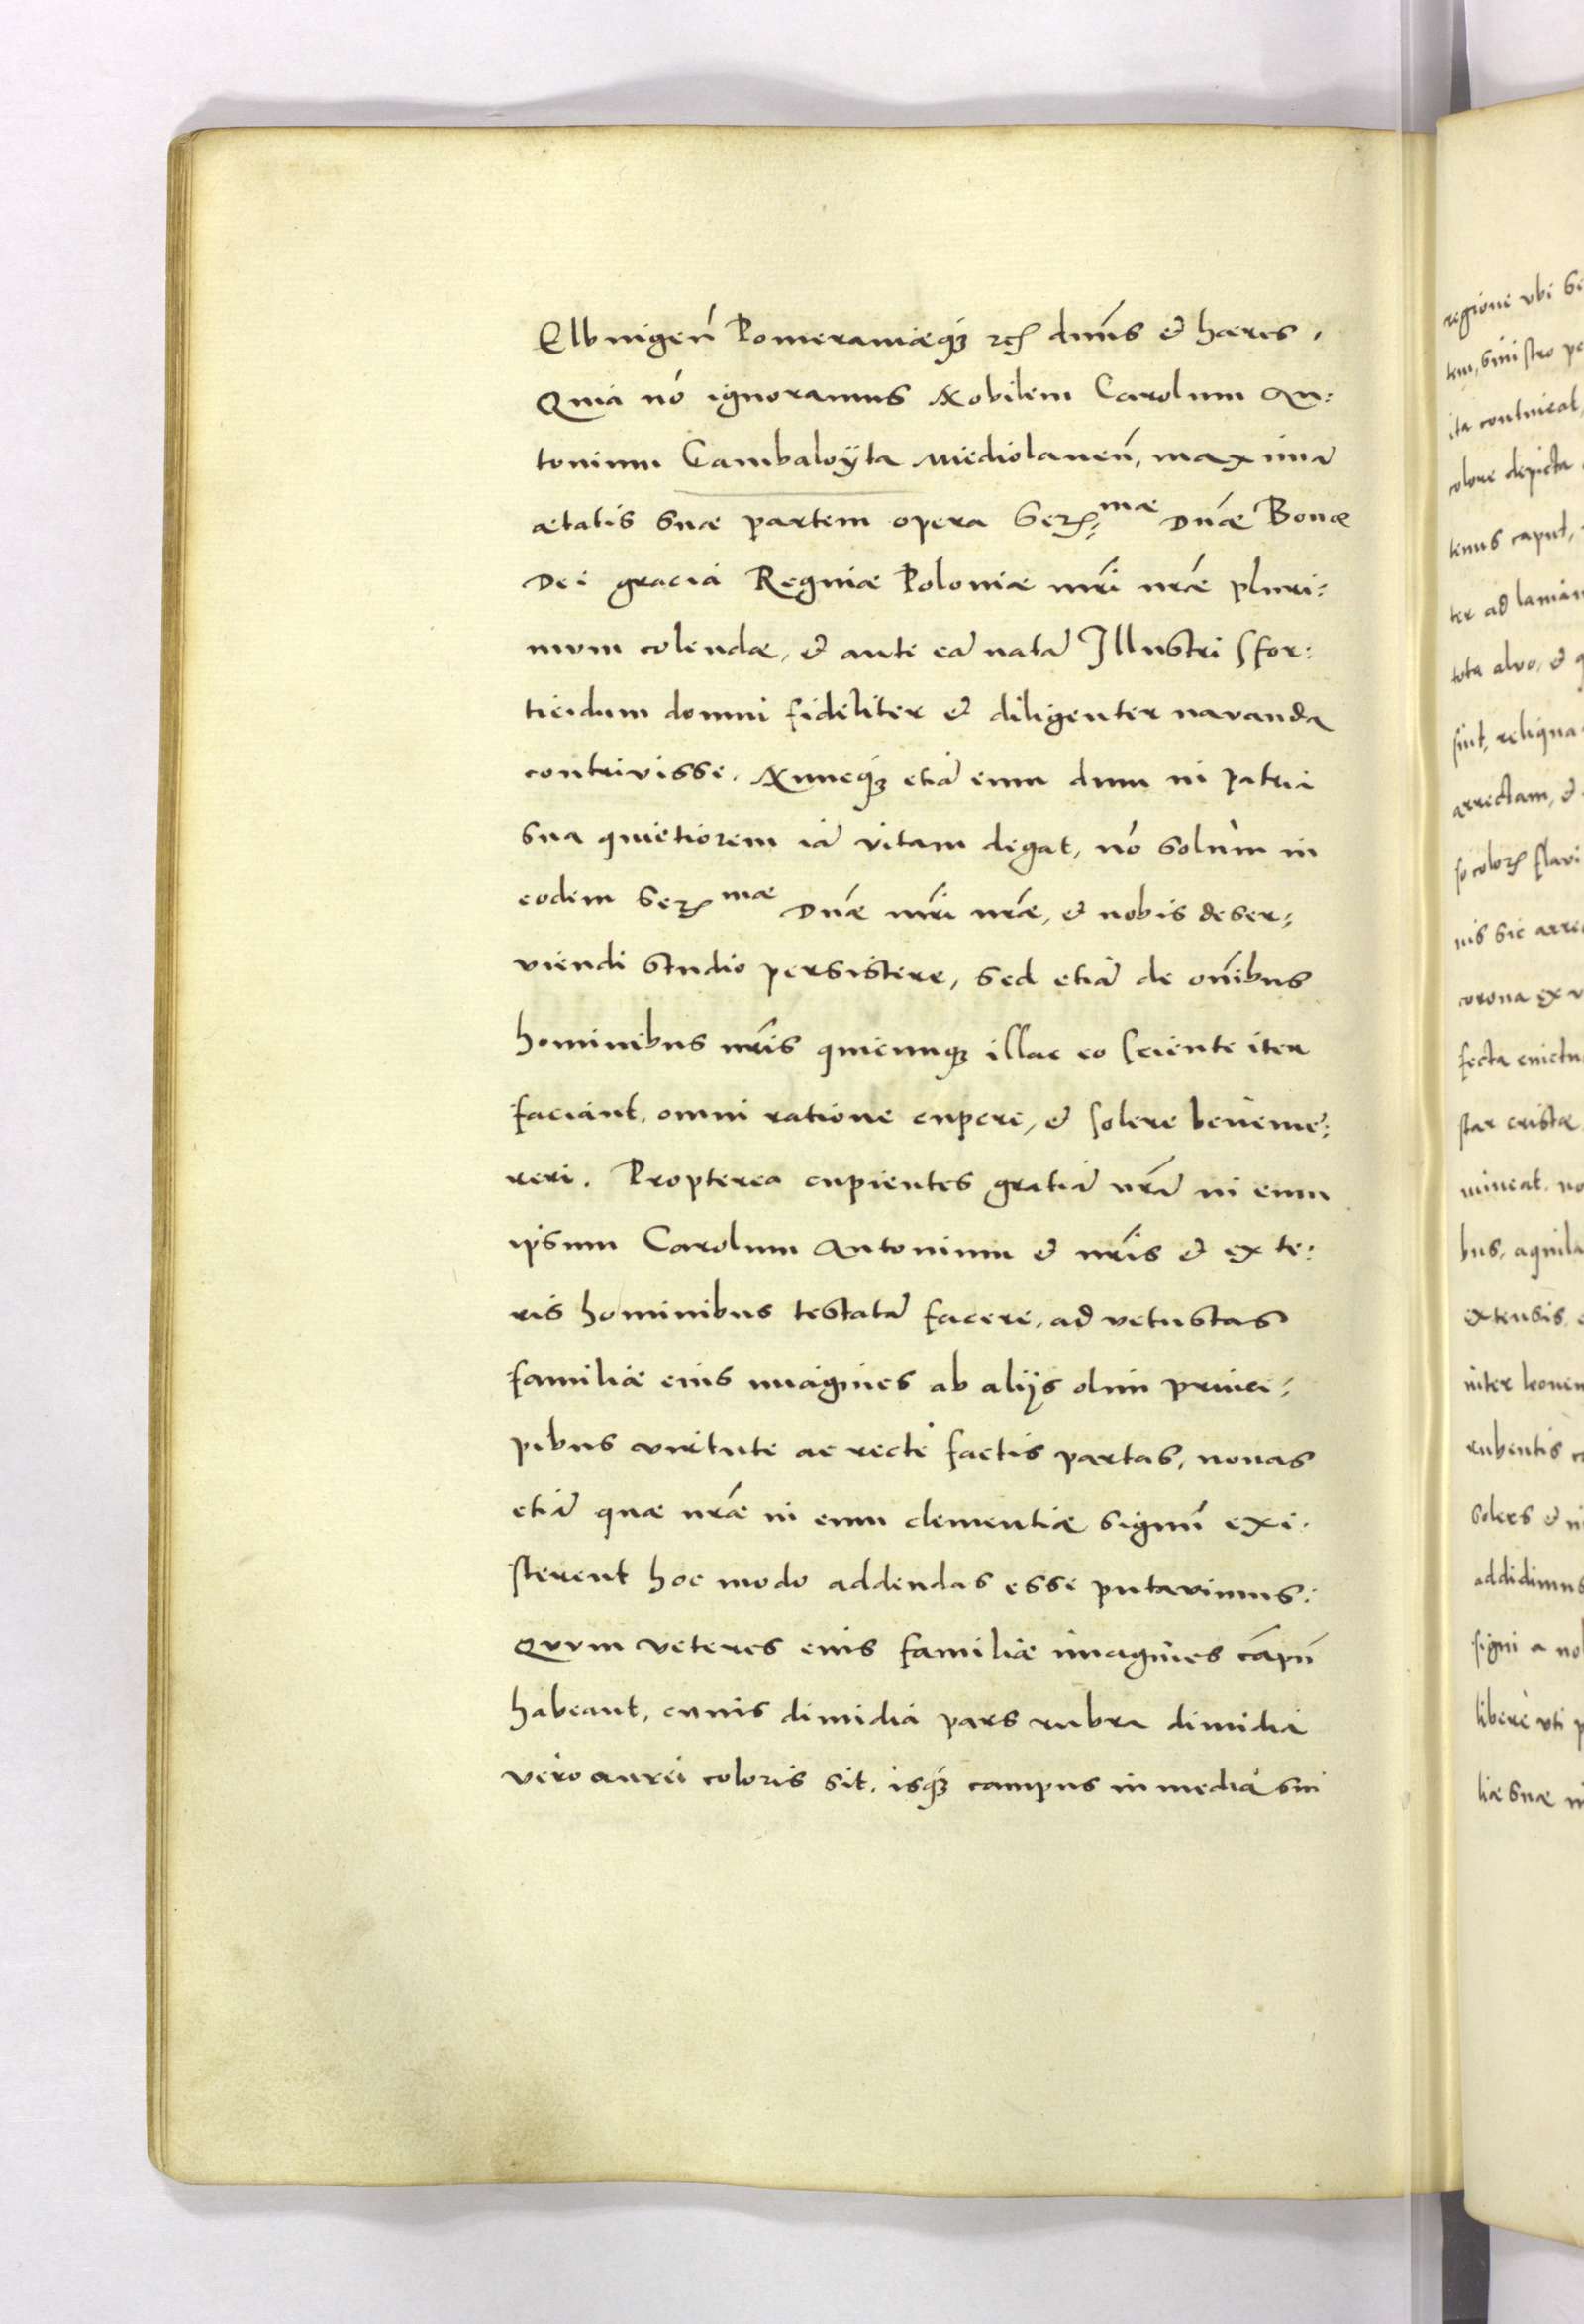 Elbingeñ Pomeraniæq́ꝫ ꝛcꝭ dnńs et hæres.
Quia nõ ignoramus Nobilem Carolum An:
tonium Cambaloyta Mediolaneñ, maximã
ætatis suæ partem opera Serꝭ:mæ Dnæ̃ Bonæ
Dei gracia Reginæ Poloniæ mri̅ nræ̃ pluri:
mvm colendæ, et ante eã natã Illustri Sfor:
ticidum domui fideliter et diligenter navanda
contrivisse. Nuncq́ꝫ etiã eum dum in patria
sua quietiorem iã vitam degat, nõ solùm in
eodem Serꝭmæ Dnæ̃ mri̅ nræ̃, et nobis deser;
viendi studio persistere, sed etiã de oñibus
hominibus nrĩs quicunqꝫ illac eo sciente iter
faciant. omni ratione cupere, et solere beneme:
reri. Propterea cupientes gratiã nrã in eum
ipsum Carolum Antonium et nrĩs et exte:
ris hominibus testatã facere. ad vetustas
familiæ eius imagines ab alijs olim princi:
pibus virtute ac recte factis partas, novas
etiã quæ nræ̃ in eum clementiæ signũ exi:
sterent hoc modo addendas esse putavimus:
Qvvm veteres eius familiæ imagines cãpũ
habeant, cuius dimidia pars rubra dimidia
vero aurei coloris sit. isq́ꝫ campus in media sui
regione vbi
tem, sinistro
ita contineat,
colore depicta
tenus caput,
ter ad
tota alvo, et
sint, reliqua
arrectam, et
so colorꝭ flavi
nis sic
corona ex
fecta
star cristæ
mineat.
bus, aquila
extensis.
niter
rubentis
solers et
addidimus
signi a
libere vti
liæ suæ